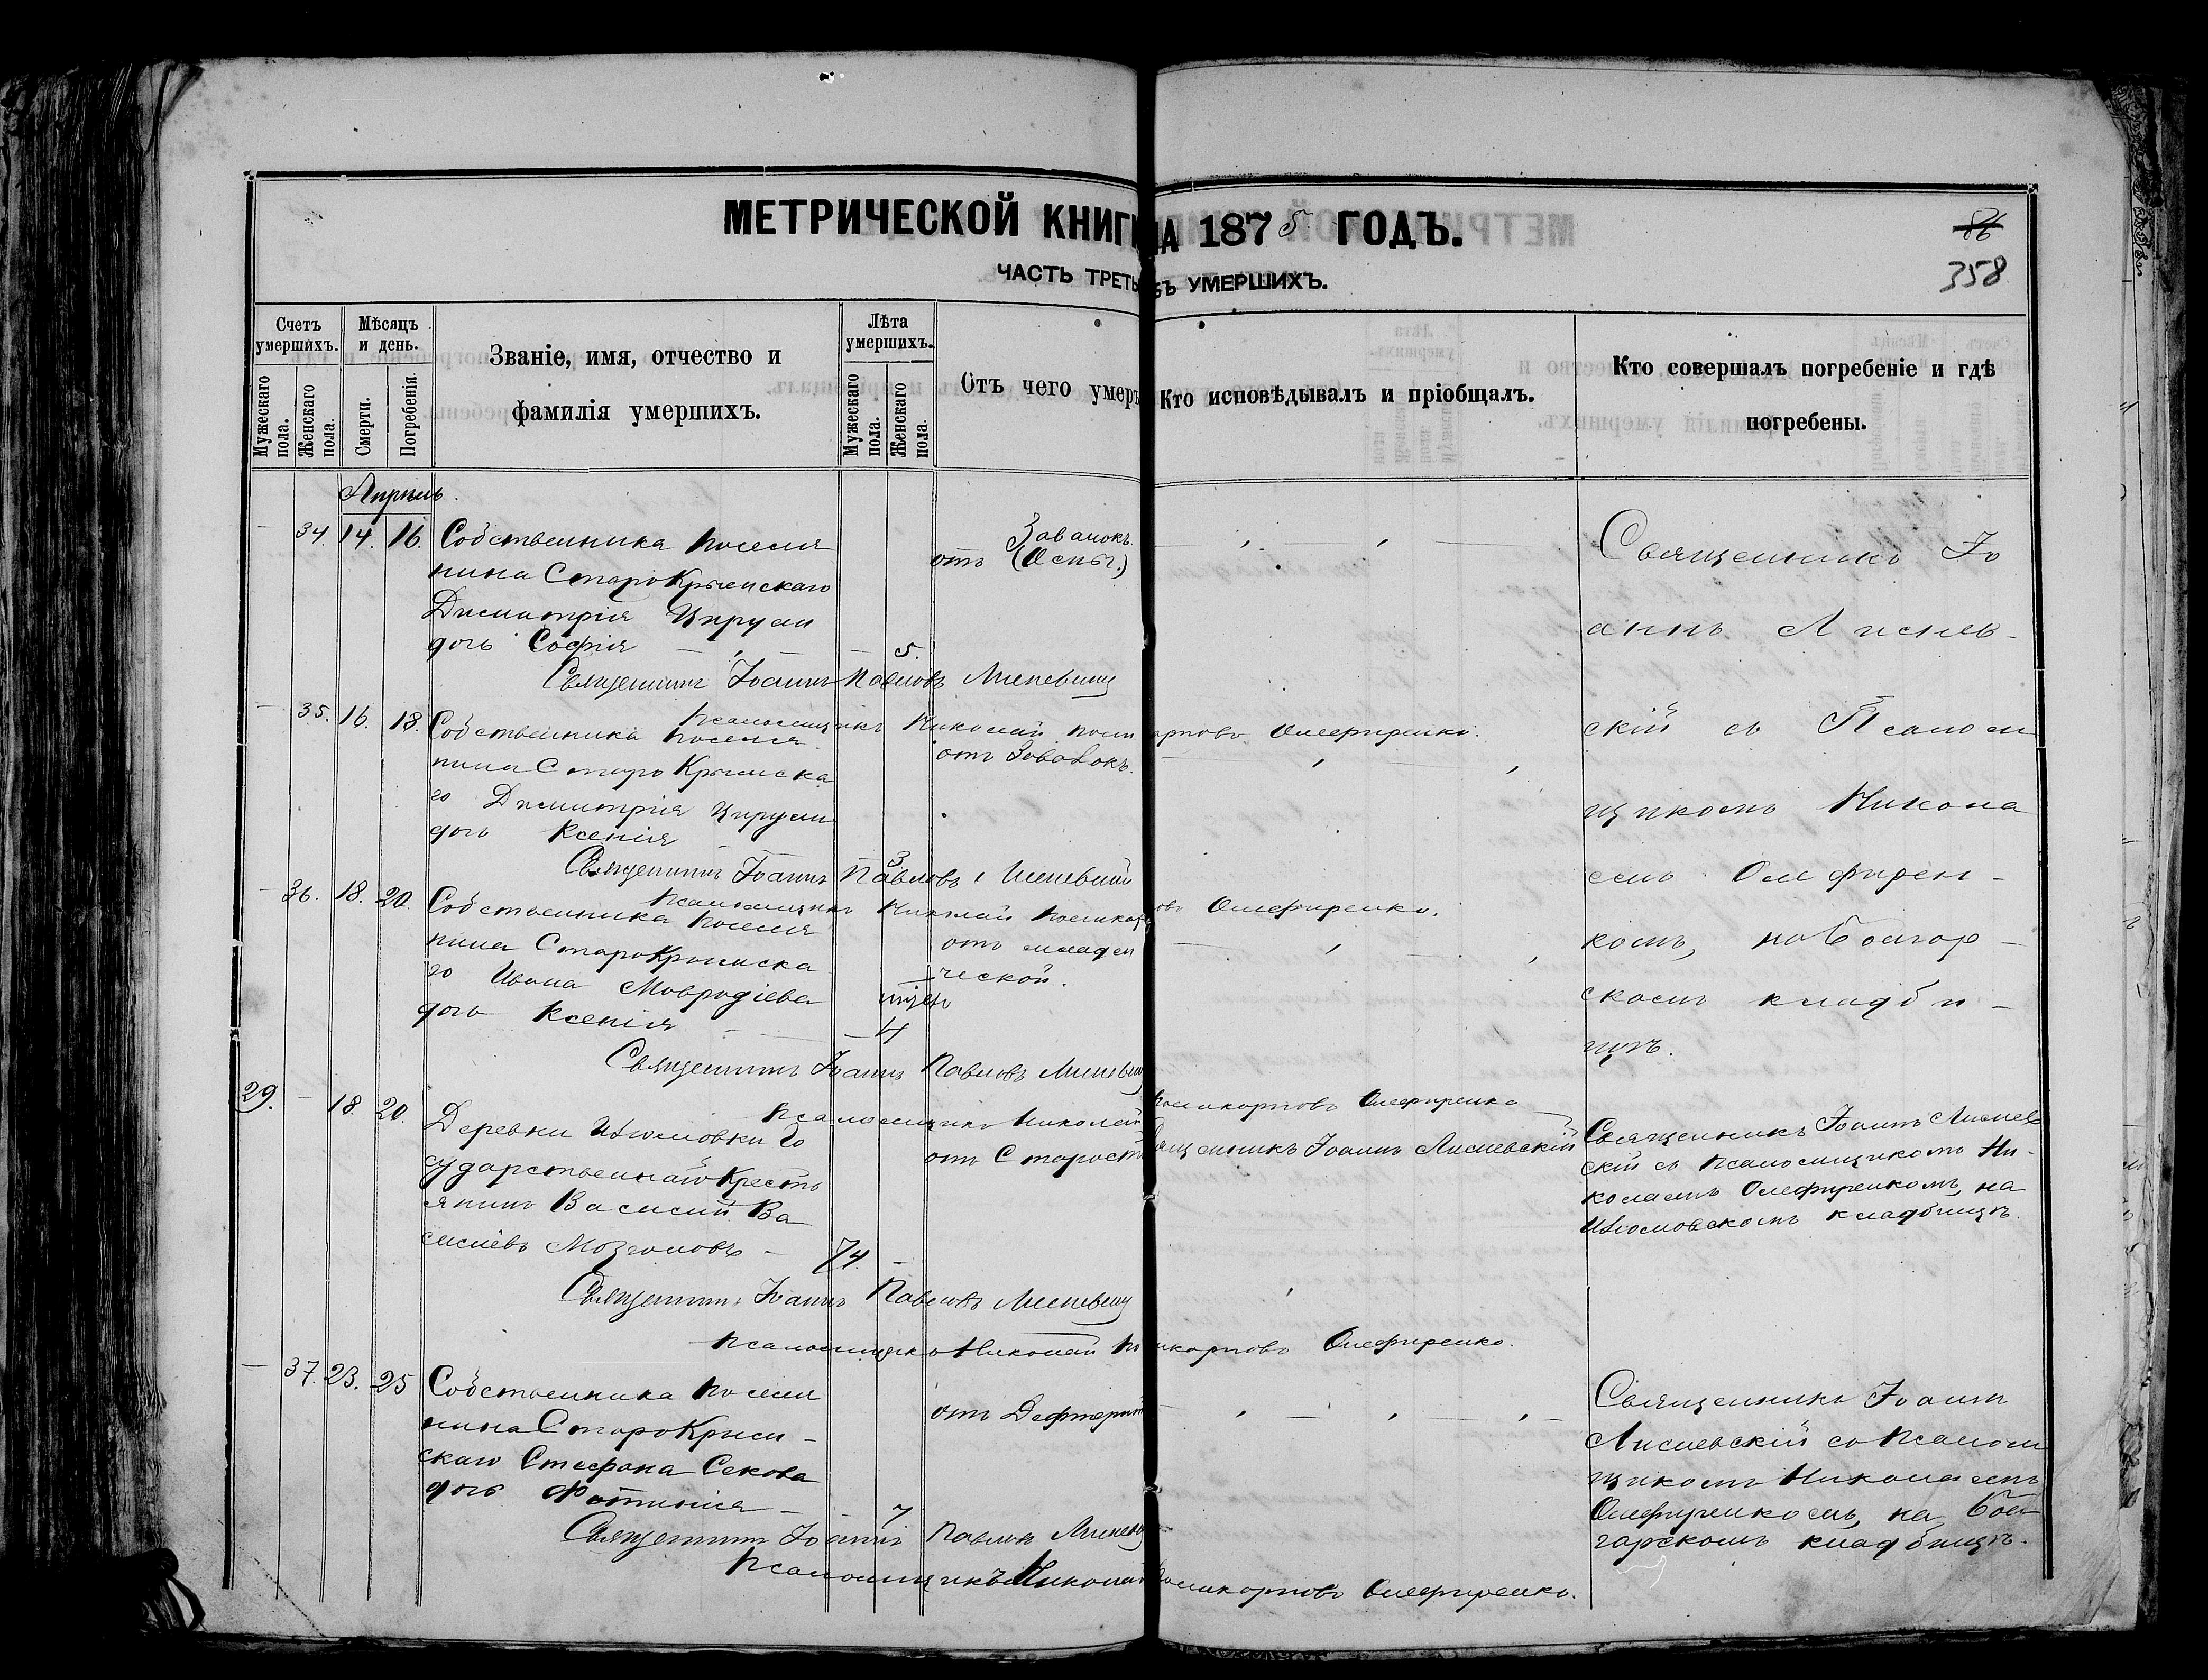 МЕТРИЧЕСКОЙ КНИГИ НА 1875 ГОДЪ.
86
358
ЧАСТЬ ТРЕТЬ ОБЪ УМЕРШИХЪ.
Счетъ умершихъ.
Мужескаго пола.
Женскаго пола.
Мѣсяцъ и день.
Смерти.
Погребенія.
Званіе, имя, отчество и
фамилія умершихъ.
Лѣта умершихъ.
Мужескаго пола.
Женскаго пола.
Отъ чего умеръ
Кто исповѣдывалъ и пріобщалъ.
Кто совершалъ погребеніе и гдѣ
погребены.
Апрѣль.
34. 14. 16.
Собственника поселя
нина Старокрымскаго
Димитрія
дочь Софія
5.
отъ (Оспы.)
Священникъ Іоаннъ Павловъ Лисневскій
Священникъ Іо
аннъ Лиснев-
скій съ Псалом
щикомъ Никола
емъ Олефирен-
комъ, на болгар-
скомъ кладби-
щѣ.
35. 16. 18.
Псаломщикъ Николай Поликарповъ Олефиренко.
Собственника поселя
нина Старо Крымска
го Димитрія
дочь Ксенія
3
Священникъ Іоаннъ Павловъ Лисневскій
36. 18. 20.
Псаломщикъ Николай Поликарповъ Олефиренко.
Собственника поселя
нина Старокрымска
го Ивана Мавродіева
дочь Ксенія
4
отъ младен
ческой.
Священникъ Іоаннъ Павловъ Лисневскій
29. 18. 20.
Псаломщикъ Николай Поликарповъ Олефиренко
Деревни Игнатовки Го
сударственный Кресть
янинъ Василій Ва
сильевъ
74.
отъ Старости
Священникъ Іоаннъ Лисневскій
Священникъ Іоаннъ Лиснев
скій съ Псаломщикомъ Ни-
колаемъ Олефиренкомъ, на
кладбищѣ.
Священникъ Іоаннъ Павловъ Лисневскій
Псаломщикъ Николай Поликарповъ Олефиренко.
37. 23. 25
Собственника поселя
нина Старокрым-
скаго Стефана Секова
дочь Фотинія
7
отъ Дифтерит
Священникъ Іоаннъ
Лисневскій съ Псалом
щикомъ Николаемъ
Олефиренкомъ, на бол
гарскомъ кладбищѣ.
Священникъ Іоаннъ Павловъ Лисневскій
Псаломщикъ Николай Поликарповъ Олефиренко.